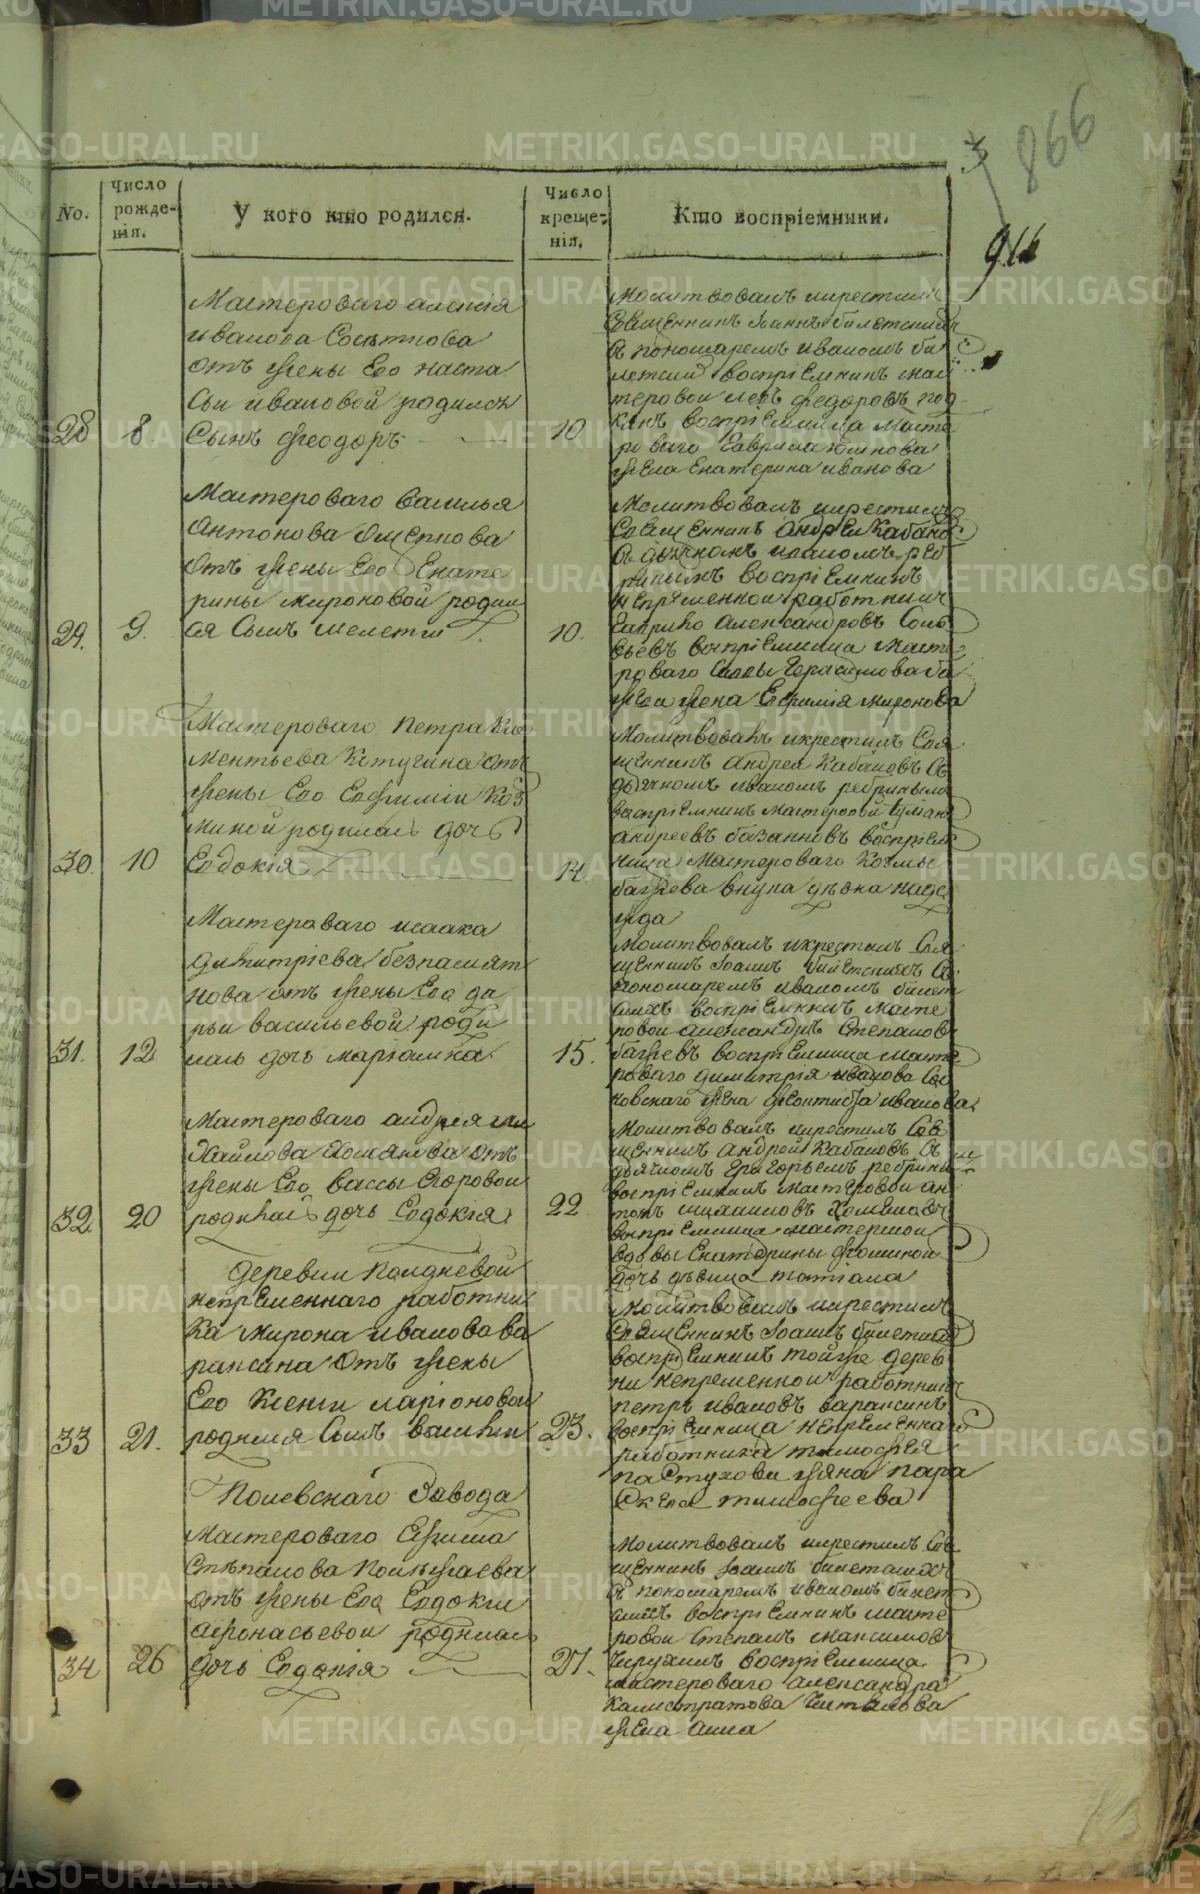 866
3
966
No.
Число рожде-
нія.
У кого кто родился.
Число креще-
нія.
Кто воспріемники.
Мастероваго алексія
иванова
отъ жены Его наста
сьи ивановой родился
28 8. Сынъ Феодоръ
10
Молитвовалъ икрестилъ
Священникъ Іоаннъ билетскій
съ пономаремъ иваномъ би
летскимъ воспріемникъ мас
теровои левъ федоровъ под
кинъ воспріемница масте
роваго Гаврила
жена Екатерина иванова
Мастероваго василья
Антонова
отъ жены Его Екате
рины мироновой родил
29. 9. ся Сынъ мелетій
10.
Молитвовалъ икрестилъ
Священникъ андреи Кабано
съ дьячкомъ иваномъ реб
ринымъ воспріемникъ
непременнои работникъ
Гаврило александровъ Соль
вьевъ воспріемница масте
роваго Саввы Герасимова
жена Евфимія миронова
Мастероваго петра Кле
ментьева Кетугина отъ
жены Его Евфиміи Коз
миной родилась дочь
30. 10 Евдокія
14.
Молитвовалъ икрестилъ Свя
щенникъ андреи Кабановъ съ
дьячкомъ иваномъ ребринымъ
воспріемникъ мастеровои
андреевъ воспріем
ница мастероваго Козмы
внука дѣвка наде
жда
Мастероваго исаака
димитріева безпамят
нова отъ жены Его да
рьи васильевой роди
31. 12 лась дочь маріамна.
15.
Молитвовалъ икрестилъ Свя
щенникъ Іоаннъ билетскихъ съ
пономаремъ иваномъ билет
скихъ воспріемникъ масте
ровои александръ Степанов
воспріемница масте
роваго димитрія иванова Сос
новскаго жена Феоктиста иванова
Мастероваго андрея ми
хайлова Хомякова отъ
жены Его вассы Егоровои
32 20 родилась дочь Евдокія
22
Молитвовалъ икрестилъ Свя
щенникъ андрей Кабановъ съ
дьячкомъ Григорьемъ ребрины
воспріемникъ мастеровои ан
тонъ михаиловъ Хомяковъ
воспріемница мастерскои
вдовы Екатерины фоминой
дочь дѣвица татіана
деревни полдневой
непременнаго работни
ка мирона иванова ва
раксина отъ жены
Его Ксеніи ларіоновои
33 21. родился Сынъ василіи
23.
Молитвовалъ икрестилъ
Священникъ Іоаннъ билетскій
воспріемникъ тойже дерев
ни непременнои работникъ
петръ ивановъ вараксинъ
воспріемница непременнаго
работника тимофея
пастухова жена пара
скева тимофеева
Полевскаго Завода
мастероваго Ефима
Степанова
отъ жены Его Евдокіи
афонасьевои родилась
34 26 дочь Евдокія
27.
Молитвовалъ икрестилъ Свя
щенникъ Іоаннъ билетскихъ
съ пономаремъ иваномъ билет
скихъ воспріемникъ масте
ровои Степанъ максимовъ
воспріемница
мастероваго александра
Калистратова
жена анна
METRIKI.GASO-URAL.RU